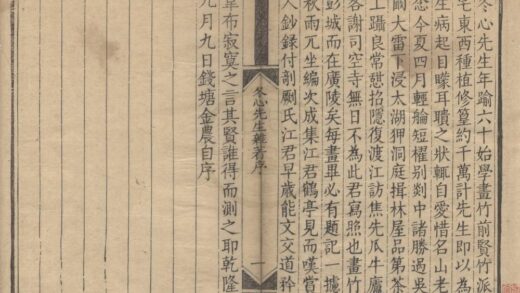 冬心先生年踰六十始學畫竹前賢竹派
宅東西種植修篁約千萬計先生即以為
生病起目矇耳聵之狀輒自愛惜名山老
今夏四月輕艑短櫂别剡中諸勝過吳
大雷下浸太湖狎洞庭揖林屋品第茶
上躡良常憇招隱復渡江訪焦先瓜牛廬
客謝司空寺無日不為此君寫照也畫竹
彭城而在廣陵矣每畫畢必有題記一據
秋雨兀坐編次成集江君鶴亭見而嘆賞
人鈔錄付剞劂氏江君早歲能文交道矜
冬心先生雜著序
一
韋布寂寞之言其賢誰得而測之耶乾隆
九月九日錢塘金農自序